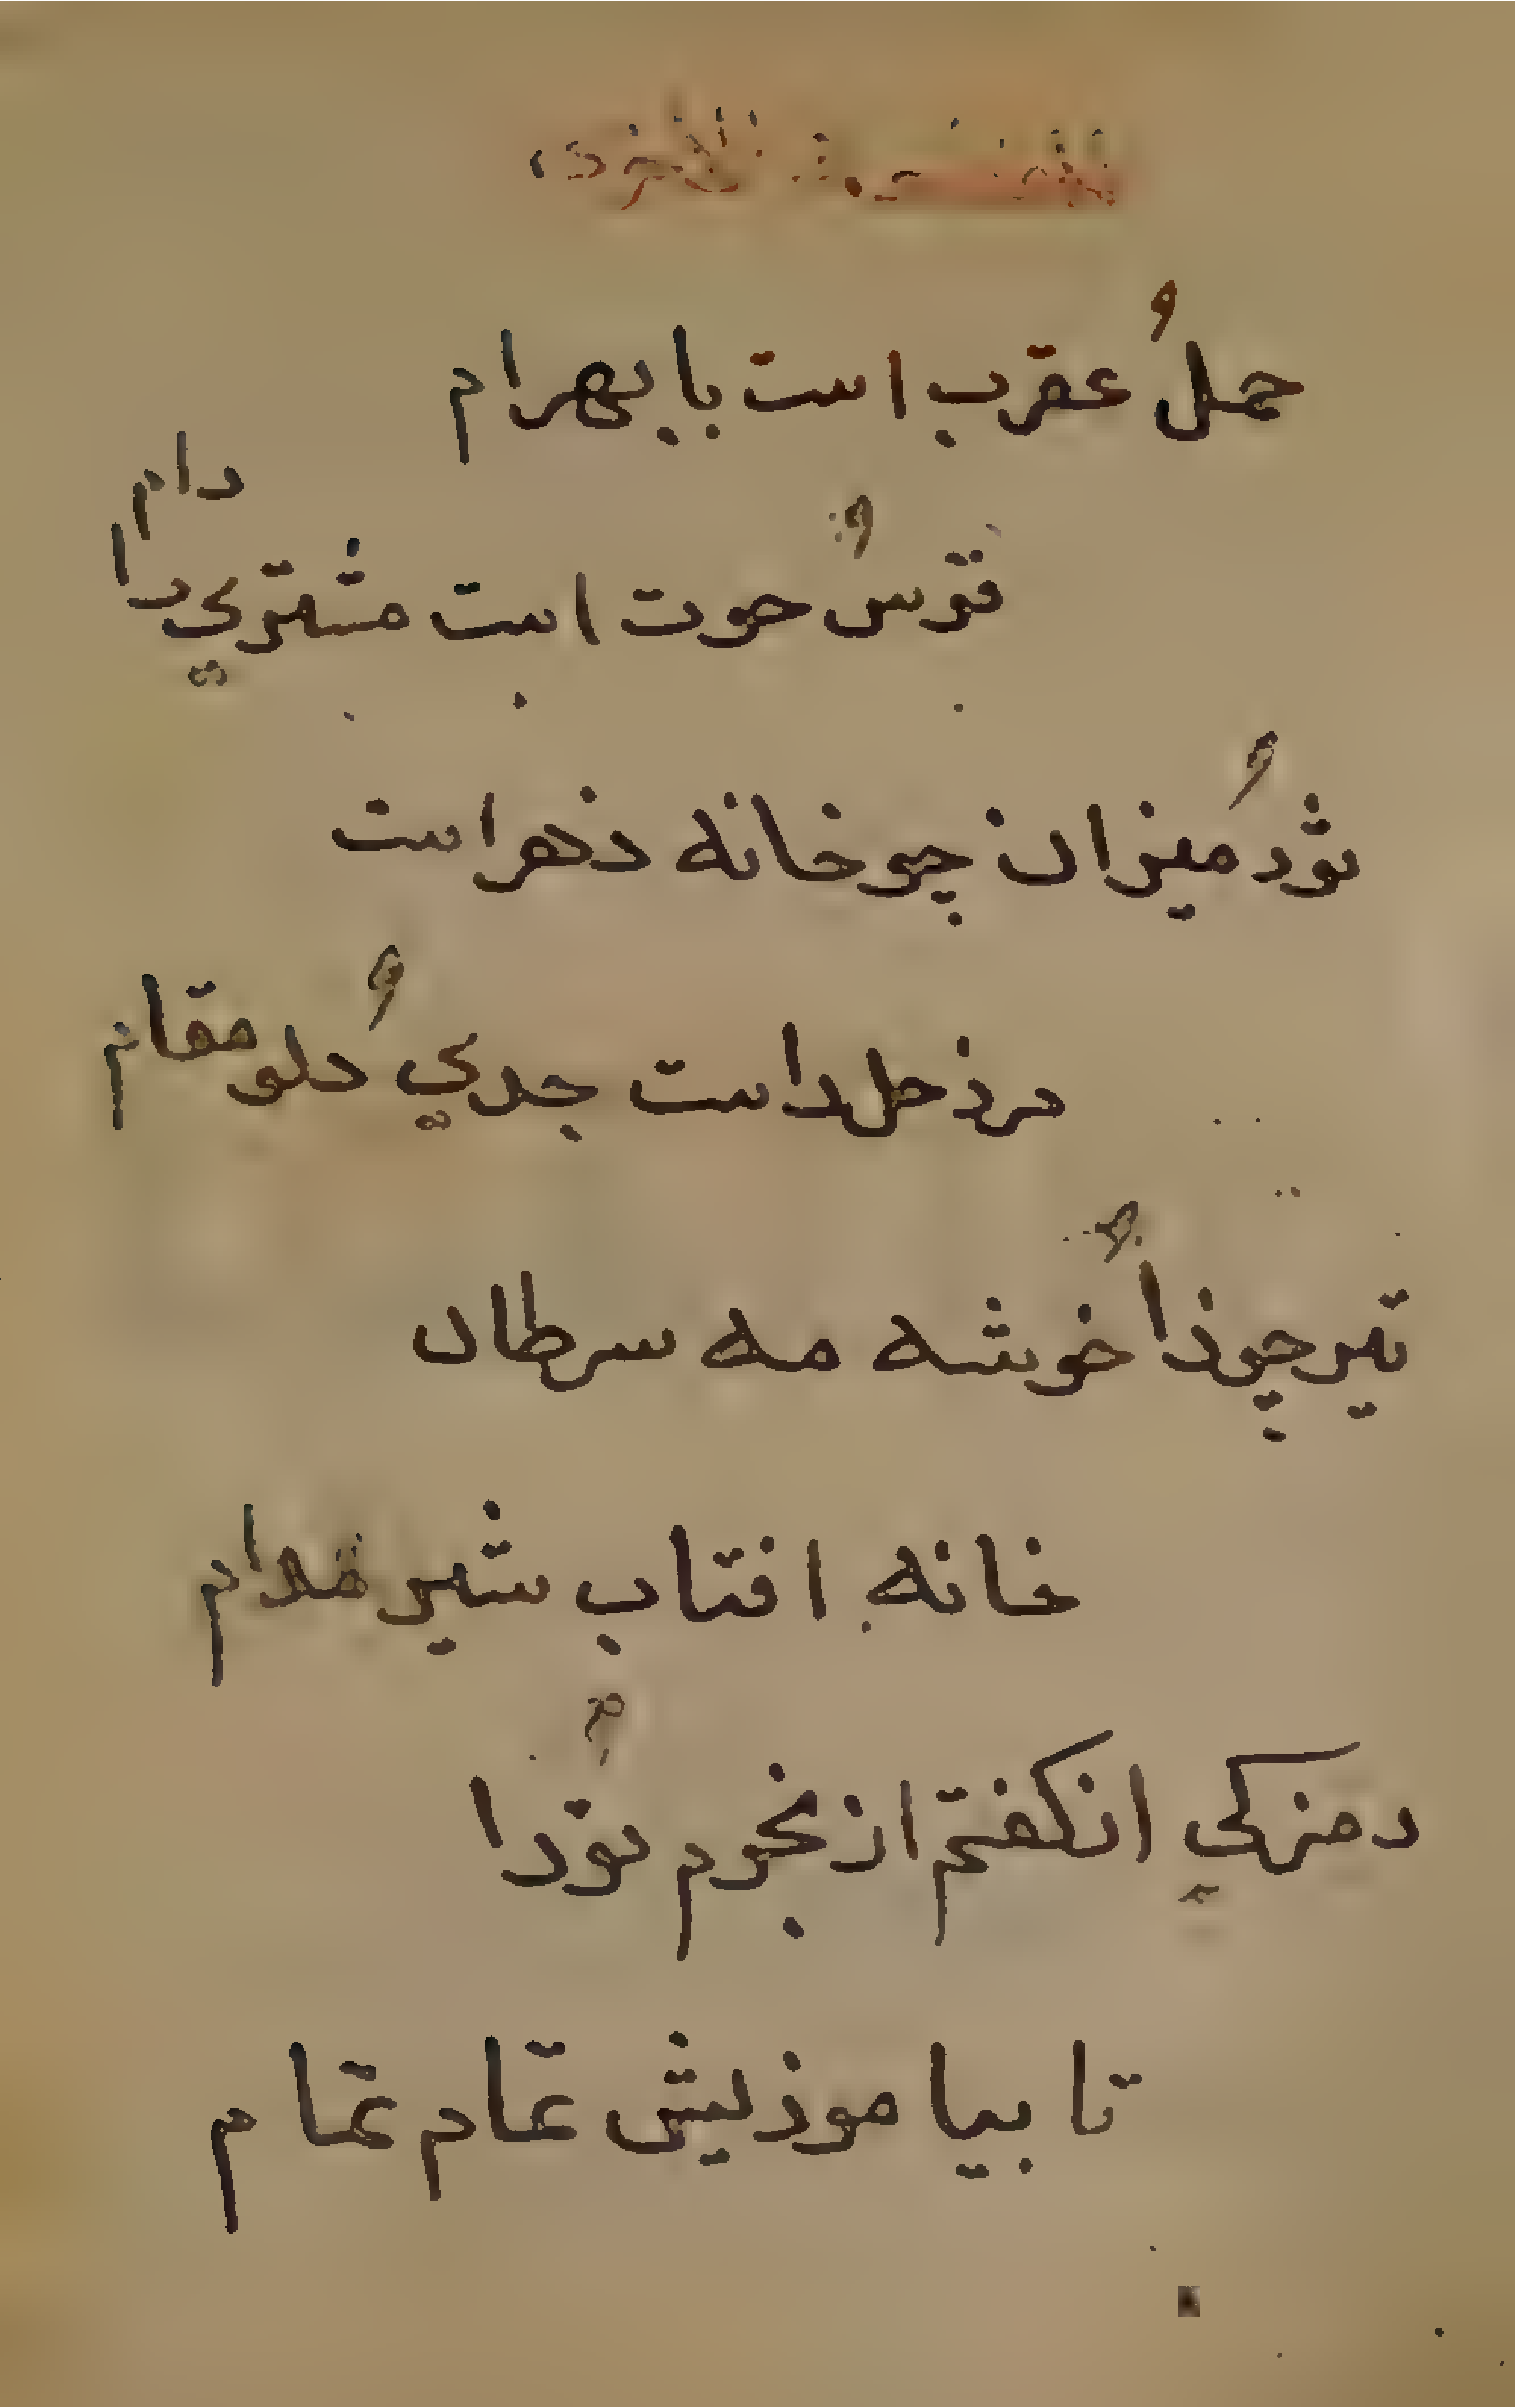 حمل و عقرب است با بهرام
قوس و حوت است مشتري را دام
ثور و ميزان چو خانه زهراست
مر زحل راست جدي و دلو مقام
تير جوزا و خوشه مه سرطان
خانه افتاب شير مدام
رمزكي ان كفتم از نجوم ترا
تا بياموزيش تمام تمام